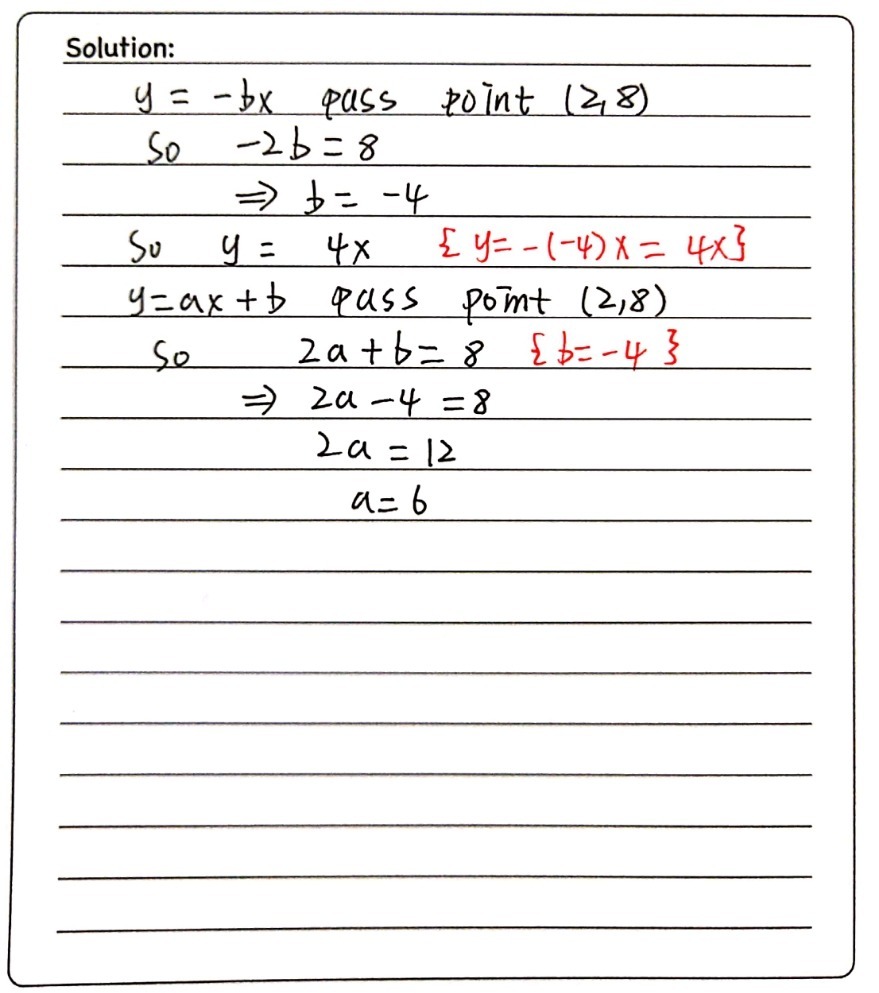 Solution:
y = -bx pass point (2,8)
So -2b = 8
⇒ b = -4
So y = 4x {y=-(-4)x = 4x}
y=ax+b pass point (2,8)
So 2a+b=8 {b=-4}
⇒ 2a-4=8
2a=12
a=6